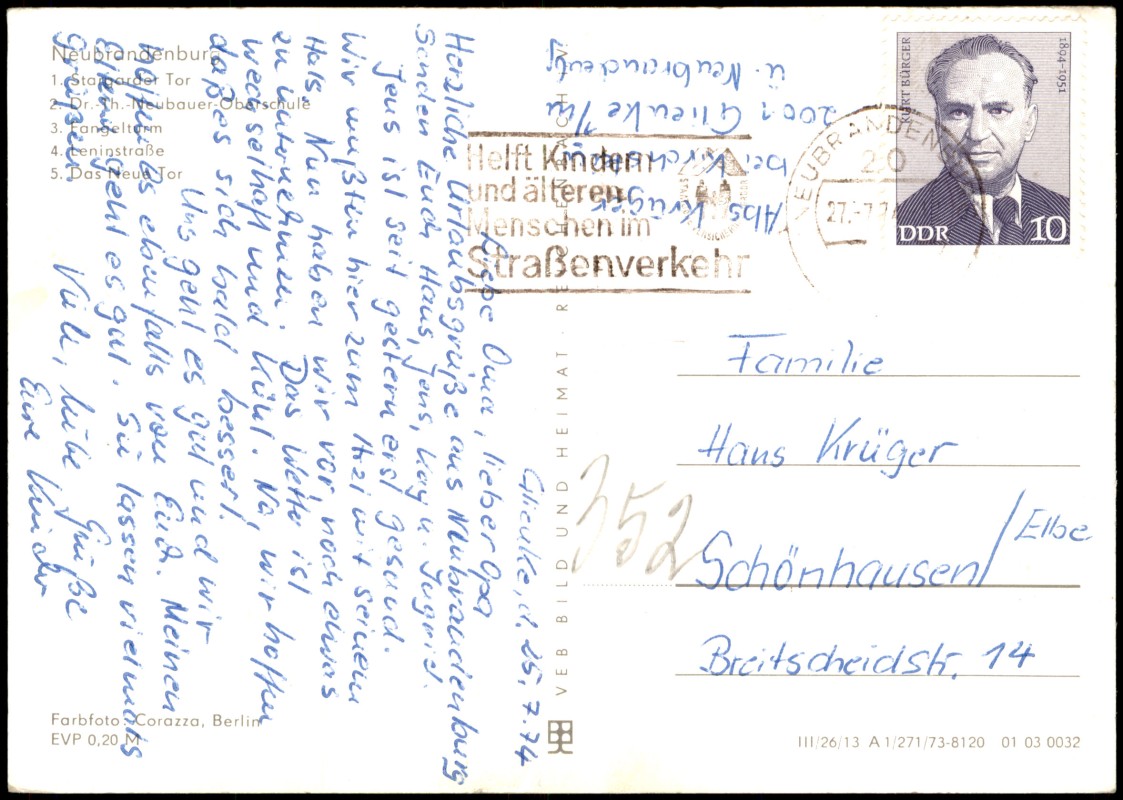 Neubrandenburg
1. Stargarder Tor
2. Dr.-Th.-Neubauer-Oberschule
3. Fangelturm
4. Leninstraße
5. Das Neue Tor
Glienke, d. 25.7.74
Liebe Oma, lieber Opa
Herzliche Urlaubsgrüße aus Neubrandenburg
senden Euch Haus, Jens, Kay u. Ingrid.
Jens ist seit gestern erst gesund.
Wir mußten hier zum Arzt mit seinem
Hals. Nun haben wir vor noch etwas
zu unternehmen. Das Wetter ist
wechselhaft und kühl. Na, wir hoffen
daß es sich bald bessert.
Uns geht es gut und wir
hoffen es ebenfalls von Euch. Meinen
Eltern geht es gut. Sie lassen vielmals
grüßen.
Viele, liebe Grüße
Eure Kinder
Abs. Krüger
bei Kirchs
2001 Glienke
ü. Neubrandenbg
Helft Kindern
und älteren
Menschen im
Straßenverkehr
NEUBRANDENBURG
20
27.-7.74
KURT BÜRGER
1894-1951
DDR 10
Familie
Hans Krüger
Schönhausen/Elbe
Breitscheidstr. 14
352
VEB BILD UND HEIMAT · REICHENBACH I. V.
Farbfoto: Corazza, Berlin
EVP 0,20 M
III/26/13 A 1/271/73-8120 01 03 0032